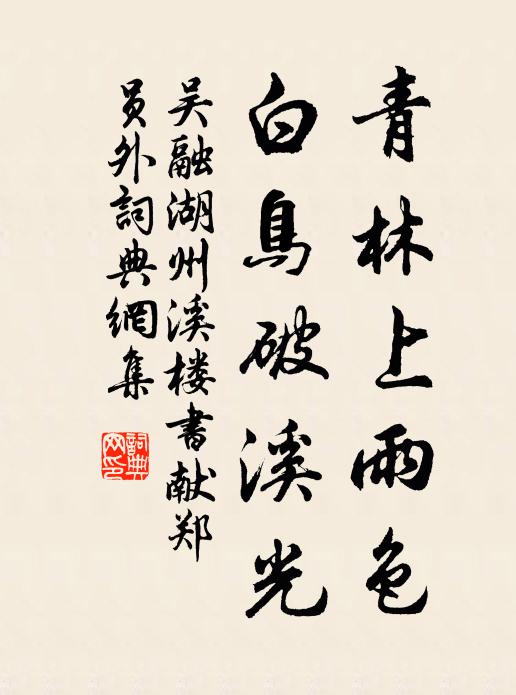 青林上雨色
白鳥破溪光
吴融湖州溪楼書献郑
員外詞典網集
詞典网印